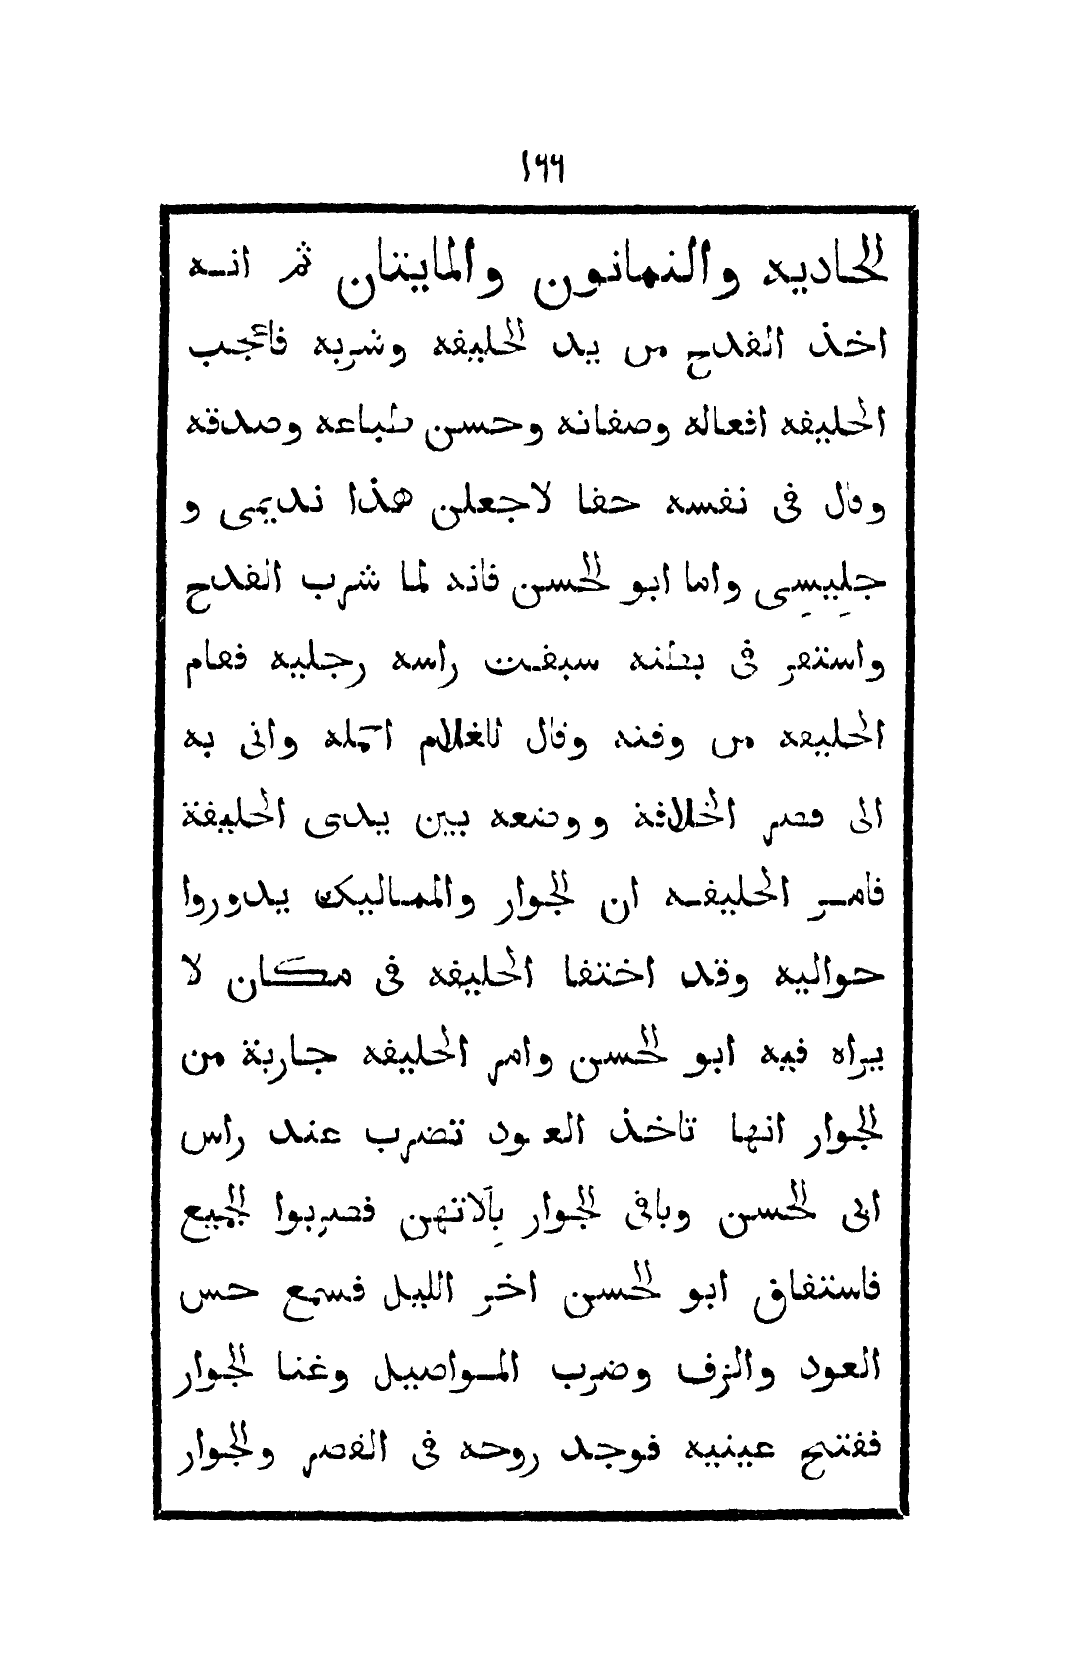 ١٦٦
الحاديه والثمانون والمايتان ثم انه
اخذ القدح من يد الخليفه وشربه فاعجب
الخليفه افعاله وصفاته وحسن طباعه وصدقه
وقال فى نفسه حقا لاجعلن هذا نديمى و
جليسى واما ابو الحسن فانه لما شرب القدح
واستقر فى بطنه سبقت راسه رجليه فقام
الخليفه من وقته وقال للغلام احمله واتى به
الى قصر الخلافة ووضعه بين يدى الخليفة
فامر الخليفه ان الجوار والمماليك يدوروا
حواليه وقد اختفا الخليفه فى مكان لا
يراه فيه ابو الحسن وامر الخليفه جارية من
الجوار انها تاخذ العود تضرب عند راس
ابى الحسن وباقى الجوار بآلاتهن فضربوا الجميع
فاستفاق ابو الحسن اخر الليل فسمع حس
العود والزف وضرب المواصيل وغنا الجوار
ففتح عينيه فوجد روحه فى القصر والجوار